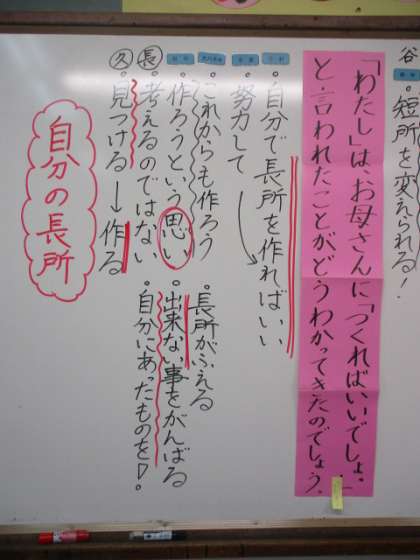 谷
・短所を変えられる！
「わたし」は、お母さんに「つくればいいでしょ。」
と言われたことがどうわかってきたのでしょう。
・自分で長所を作ればいい
努力して
・これからも作ろう
・作ろうという思い
長
・考えるのではない
久
・見つける→作る
・長所がふえる
・出来ない事をがんばる
・自分にあったものを！。
自分の長所